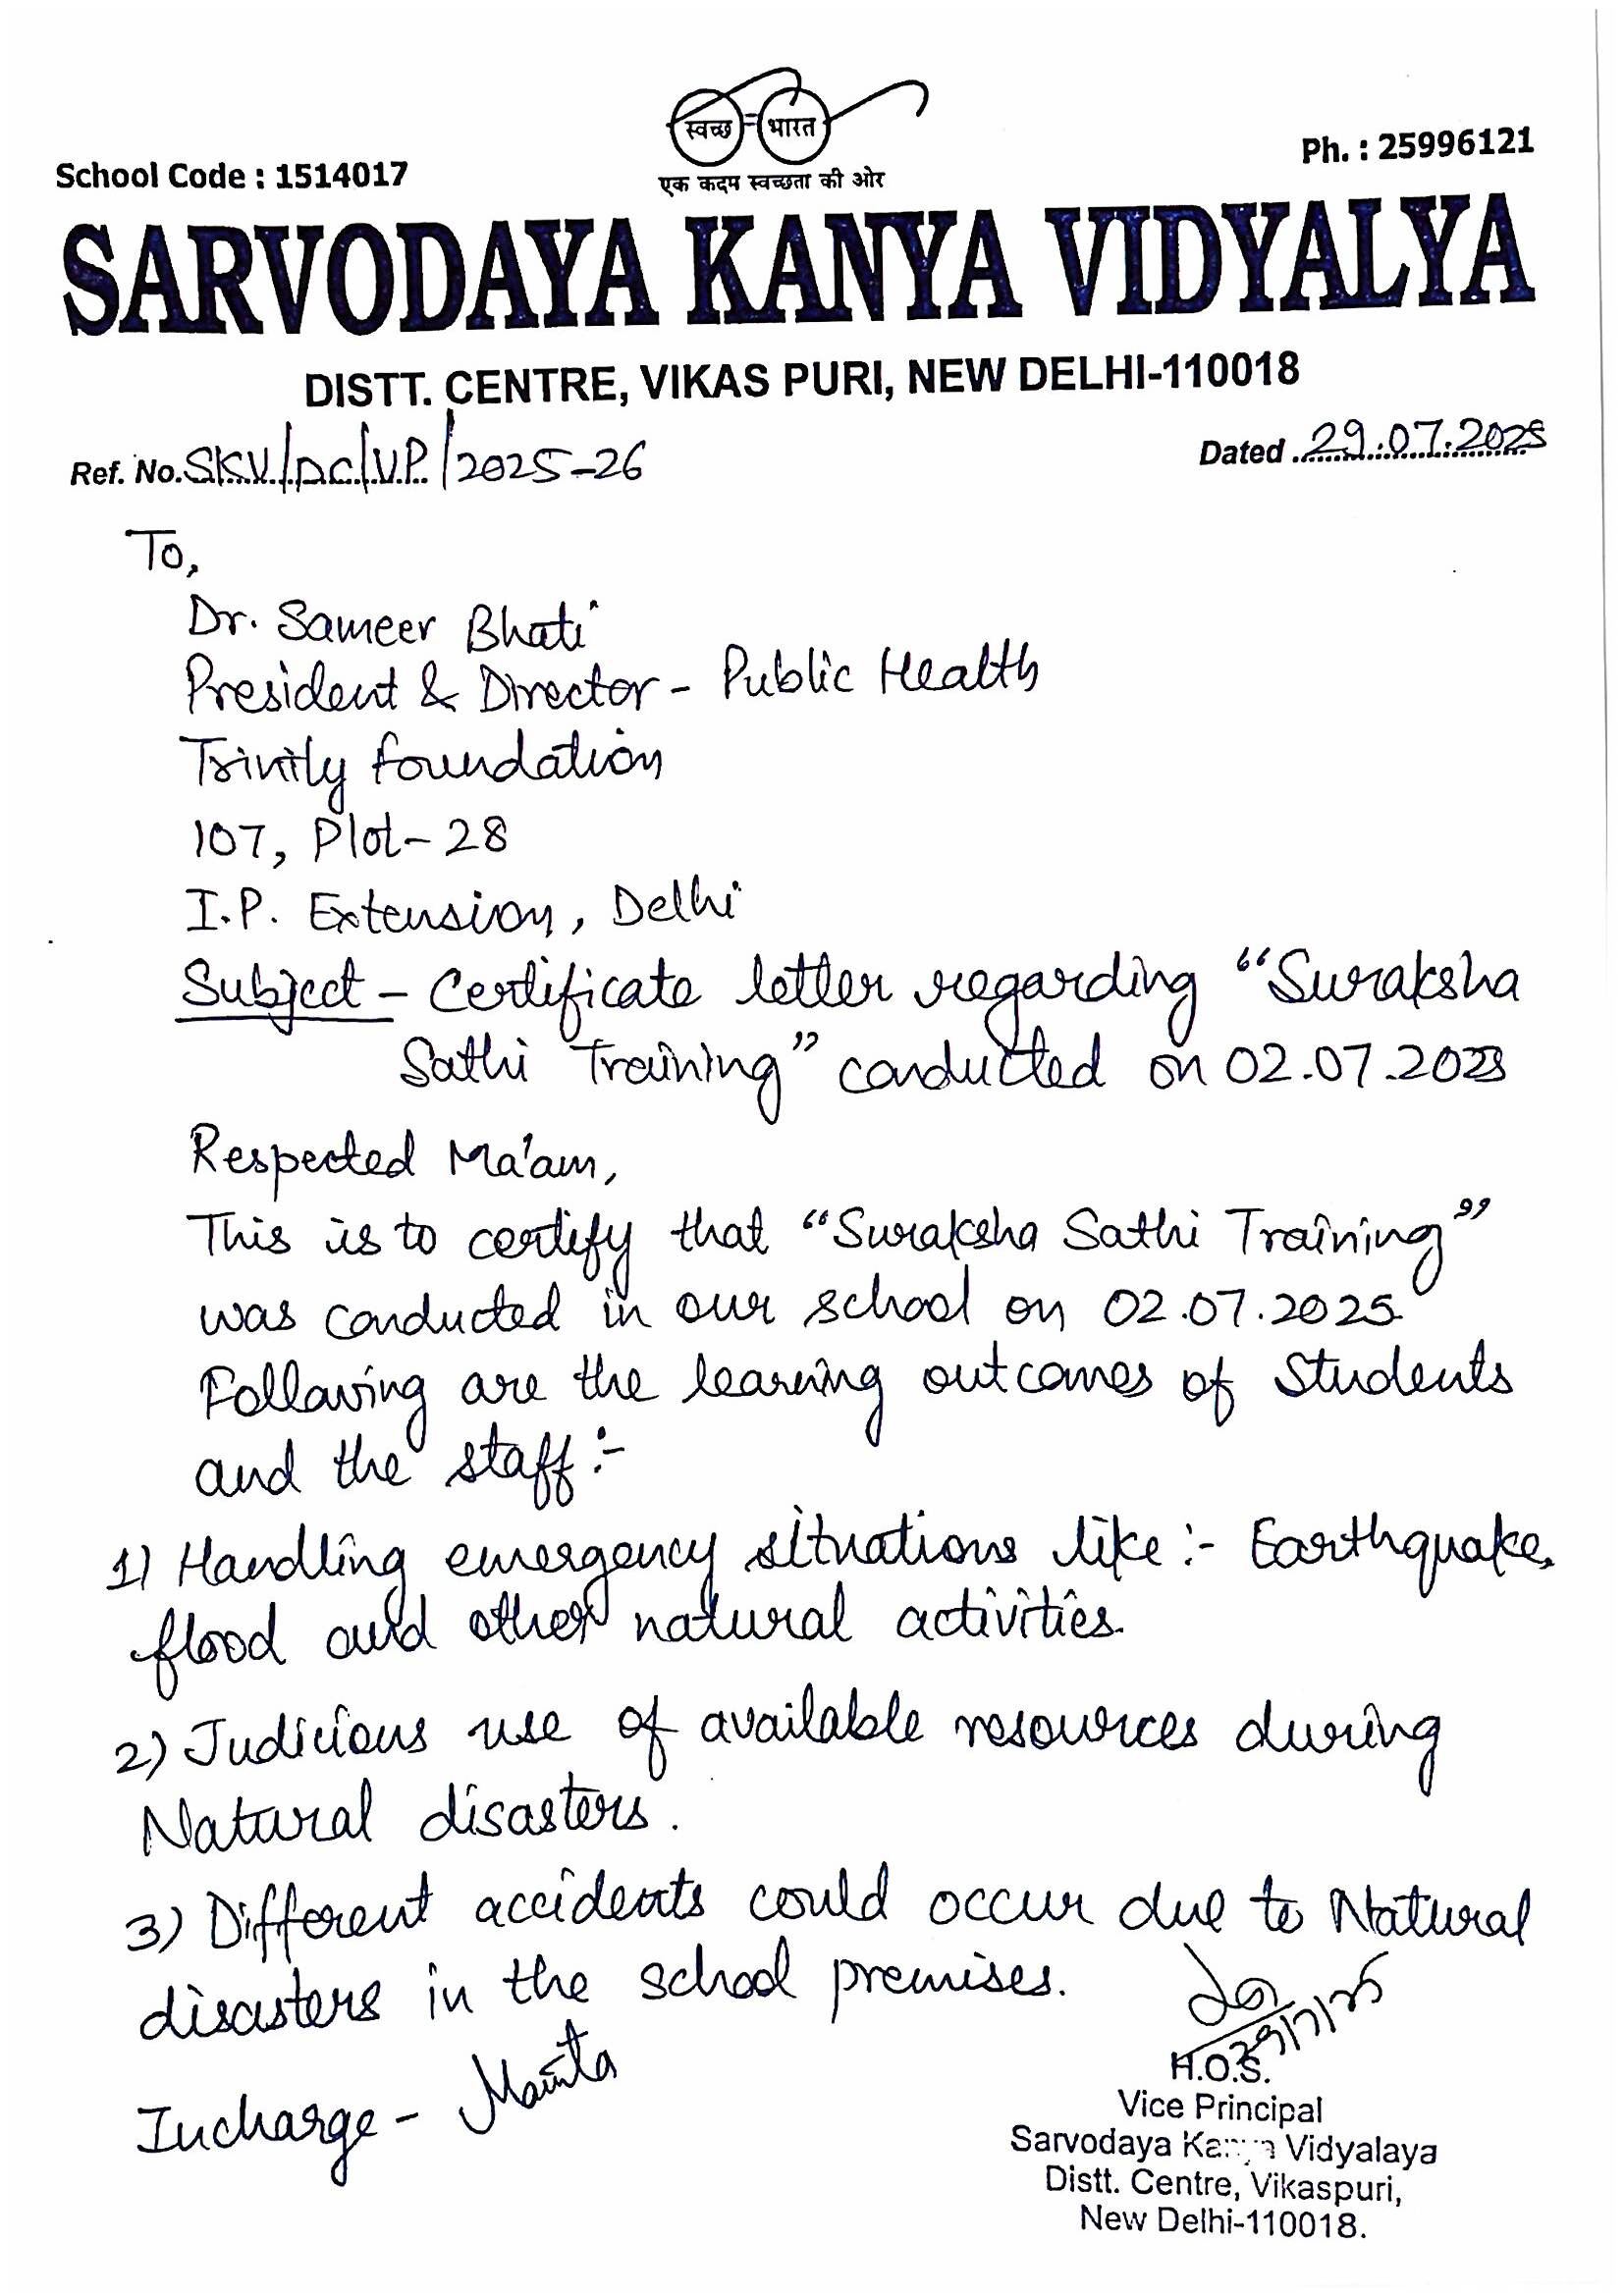 स्वच्छ भारत
एक कदम स्वच्छता की ओर
School Code : 1514017
Ph. : 25996121
SARVODAYA KANYA VIDYALYA
DISTT. CENTRE, VIKAS PURI, NEW DELHI-110018
Ref. No. SKV/DC/VP/2025-26
Dated 29.07.2025
To,
Dr. Sameer Bhati
President & Director - Public Health
Trinity foundation
107, Plot- 28
I.P. Extension, Delhi
Subject - Certificate letter regarding "Suraksha
Sathi Training" conducted on 02.07.2025
Respected Ma'am,
This is to certify that "Suraksha Sathi Training"
was conducted in our school on 02.07.2025.
Following are the learning outcomes of Students
and the staff :-
1) Handling emergency situations like :- Earthquake,
flood and other natural activities.
2) Judicious use of available resources during
Natural disasters.
3) Different accidents could occur due to Natural
disasters in the school premises.
Incharge - Mamta
29/7/25
H.O.S.
Vice Principal
Sarvodaya Kanya Vidyalaya
Distt. Centre, Vikaspuri,
New Delhi-110018.